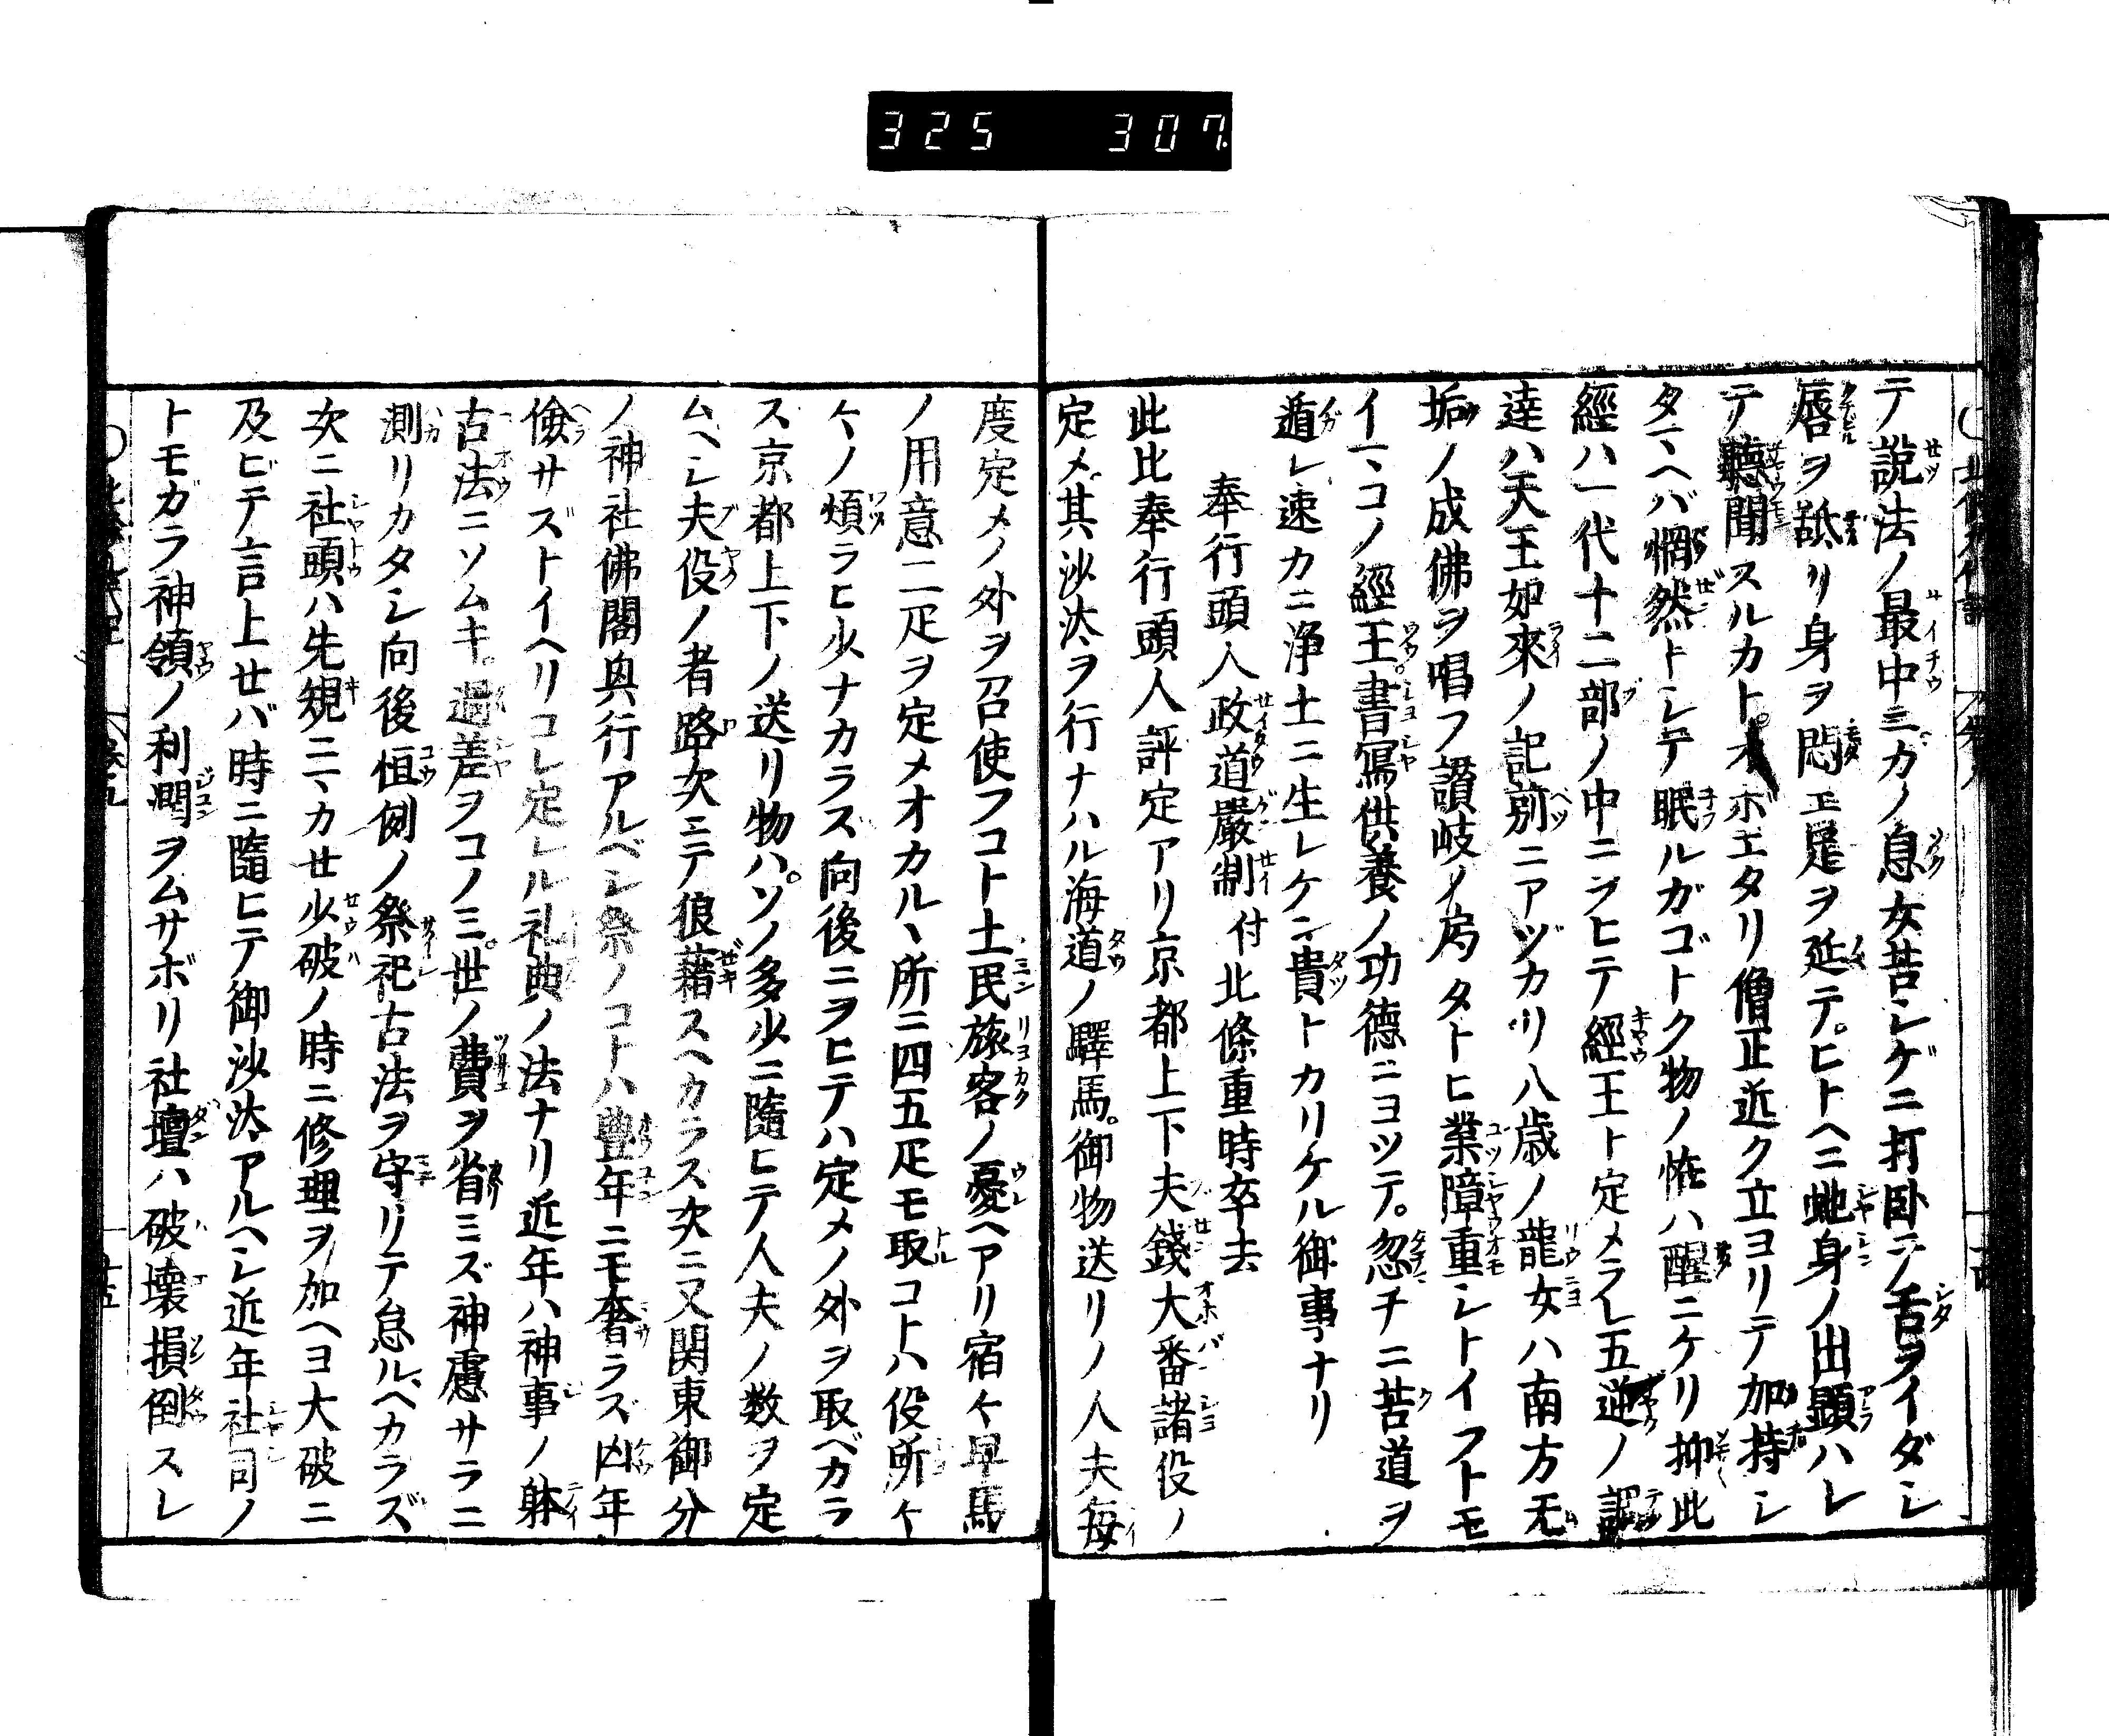 325 307
テ説法ノ最中ニカノ息女苦シゲニ打卧テ舌ヲイダシ
唇ヲ舐リ身ヲ悶エ足ヲ延テ。ヒトヘニ虵身ノ出顕ハレ
テ聽聞スルカト。オボエタリ僧正近ク立ヨリテ加持シ
タマヘバ惘然トシテ眠ルガゴトク物ノ恠ハ醒ニケリ抑此
經ハ一代十二部ノ中ニヲヒテ經王ト定メラレ五逆ノ調
達ハ天王如來ノ記莂ニアヅカリ八歳ノ龍女ハ南方无
垢ノ成佛ヲ唱フ讃岐ノ局タトヒ業障重シトイフトモ
イマコノ經王書寫供養ノ功德ニヨツテ。忽チニ苦道ヲ
遁レ速カニ浄土ニ生レケン貴トカリケル御事ナリ
奉行頭人政道嚴制付北條重時卒去
此比奉行頭人評定アリ京都上下夫錢大番諸役ノ
定メ其沙汰ヲ行ナハル海道ノ驛馬。御物送リノ人夫毎
度定メノ外ヲ召使フコト土民旅客ノ憂ヘアリ宿々早馬
ノ用意二疋ヲ定メオカルヽ所ニ四五疋モ取コトハ役所々
々ノ煩ラヒ少ナカラズ向後ニヲヒテハ定メノ外ヲ取ベカラ
ス京都上下ノ送リ物ハ。ソノ多少ニ隨ヒテ人夫ノ数ヲ定
ムヘシ夫役ノ者路次ニテ狼藉スヘカラス次ニ又関東御分
ノ神社佛閣興行アルベシ祭ノコトハ豊年ニモ奢ラズ凶年
儉サズトイヘリコレ定レル礼典ノ法ナリ近年ハ神事ノ躰
古法ニソムキ。過差ヲコノミ。世ノ費ヲ省ミズ神慮サラニ
測リカタシ向後恒例ノ祭祀古法ヲ守リテ怠ルベカラズ
次ニ社頭ハ先規ニマカセ少破ノ時ニ修理ヲ加ヘヨ大破ニ
及ビテ言上セバ時ニ隨ヒテ御沙汰アルヘシ近年社司ノ
トモガラ神領ノ利潤ヲムサボリ社壇ハ破壊損倒スレ